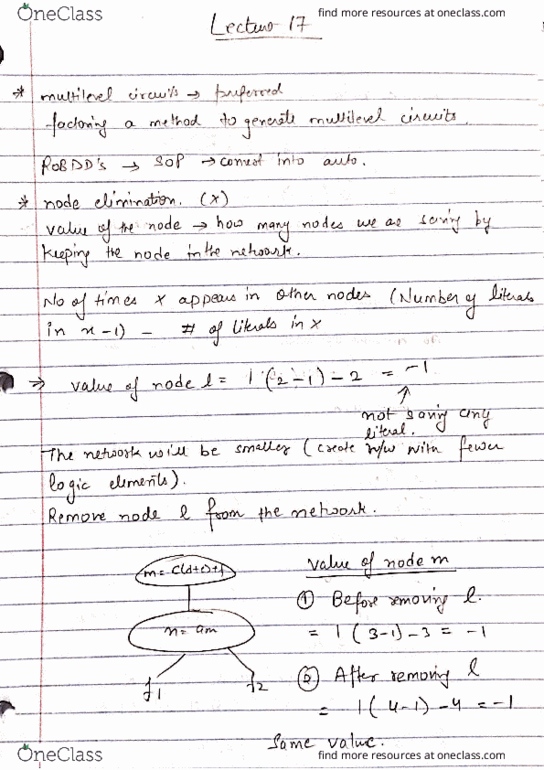 OneClass
find more resources at oneclass.com
Lecture 17
* multilevel circuits → preferred
factoring a method to generate multilevel circuits.
ROBDD's → SOP → convert into auto.
* node elimination. (x)
value of the node → how many nodes we are saving by
keeping the node in the network.
No of times x appears in other nodes (Number of literals
in x -1) - # of literals in x
⇒ value of node l = 1 (2-1) - 2 = -1
↑
not saving any
literal.
The network will be smaller (create n/w with fewer
logic elements).
Remove node l from the network.
value of node m
① Before removing l.
= 1 (3-1) - 3 = -1
② After removing l
= 1 (4-1) - 4 = -1
Same value.
n = am
f1 f2
OneClass
find more resources at oneclass.com